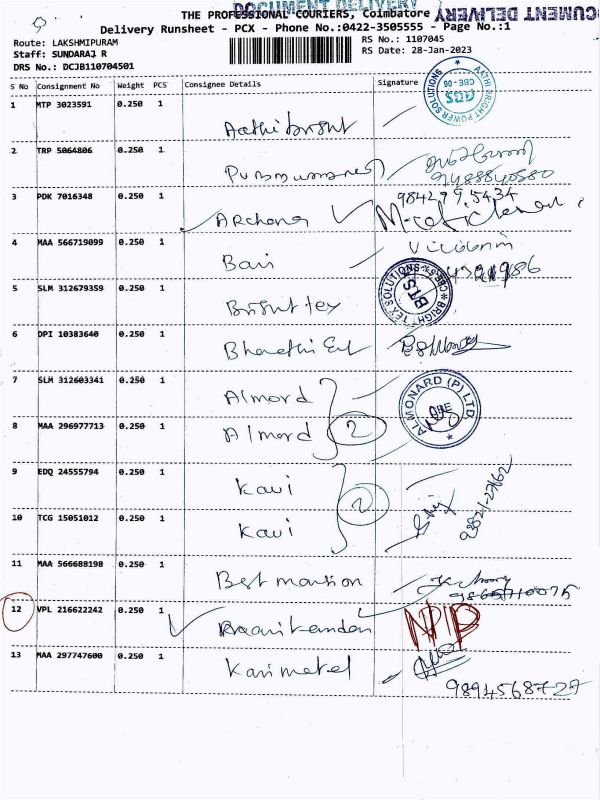 DOCUMENT DELIVERY
DOCUMENT DELIVERY
THE PROFESSIONAL COURIERS, Coimbatore
Delivery Runsheet - PCX - Phone No.:0422-3505555 - Page No.:1
Route: LAKSHMIPURAM
RS No.: 1107045
Staff: SUNDARAJ R
RS Date: 28-Jan-2023
DRS No.: DCJB110704501
S No Consignment No Weight PCS Consignee Details Signature
AATHI BRIGHT POWER SOLUTIONS
CBE - 06
1 MTP 3023591 0.250 1 Aathi bright
2 TRP 5064806 0.250 1
9488840580
3 PDK 7016348 0.250 1 Archana
984299.5434
4 MAA 566719099 0.250 1 Bari
5 SLM 312679359 0.250 1 Bright tex
BRIGHT TEX SOLUTIONS
BTS
6 DPI 10383640 0.250 1 Bharathi Ent
7 SLM 312603341 0.250 1 Almord
ALMONARD (P) LTD.
8 MAA 296977713 0.250 1 Almord 2
9 EDQ 24555794 0.250 1 Kavi
2
10 TCG 15051012 0.250 1 Kavi
11 MAA 566688198 0.250 1 Best mansion
12 VPL 216622242 0.250 1
13 MAA 297747600 0.250 1 Kavi metel
9894568727